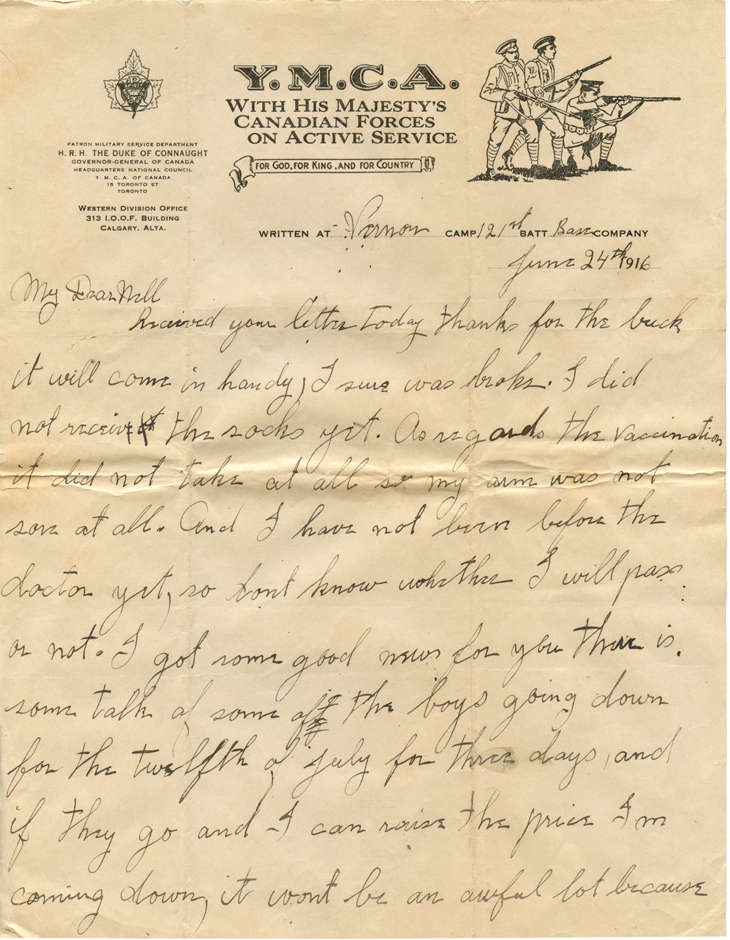 PATRON MILITARY SERVICE DEPARTMENT
H. R. H. THE DUKE OF CONNAUGHT
GOVERNOR-GENERAL OF CANADA
HEADQUARTERS NATIONAL COUNCIL
Y. M. C. A. OF CANADA
15 TORONTO ST
TORONTO
WESTERN DIVISION OFFICE
313 I.O.O.F. BUILDING
CALGARY, ALTA.
Y.M.C.A.
WITH HIS MAJESTY'S
CANADIAN FORCES
ON ACTIVE SERVICE
FOR GOD, FOR KING, AND FOR COUNTRY
WRITTEN AT Vernon CAMP 121st BATT Base COMPANY
June 24th 1916
My Dear Nell
Received your letter today thanks for the buck
it will come in handy, I sure was broke. I did
not receive the socks yet. As regards the vaccination
it did not take at all so my arm was not
sore at all. And I have not been before the
doctor yet, so dont know whether I will pass
or not. I got some good news for you there is.
some talk of some of the boys going down
for the twelfth of july for three days, and
if they go and I can raise the price I'm
coming down, it wont be an awful lot because